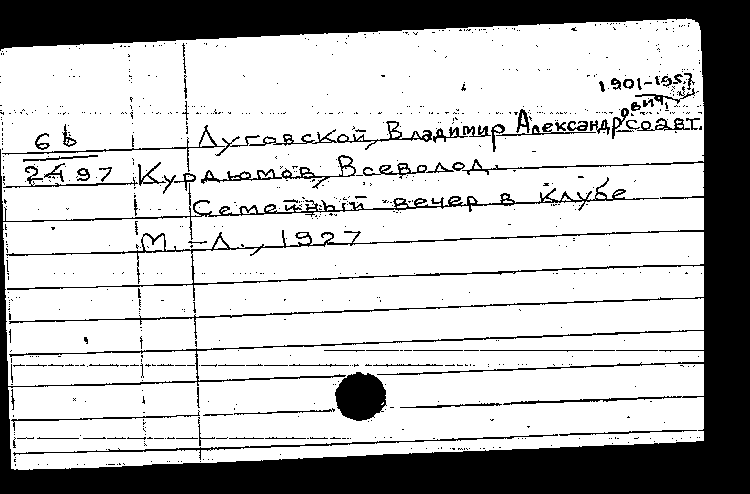 1901-1957
6b Луговской, Владимир Александрович, соавт.
2497 Курдюмов, Всеволод.
Семейный вечер в клубе
М.-Л., 1927